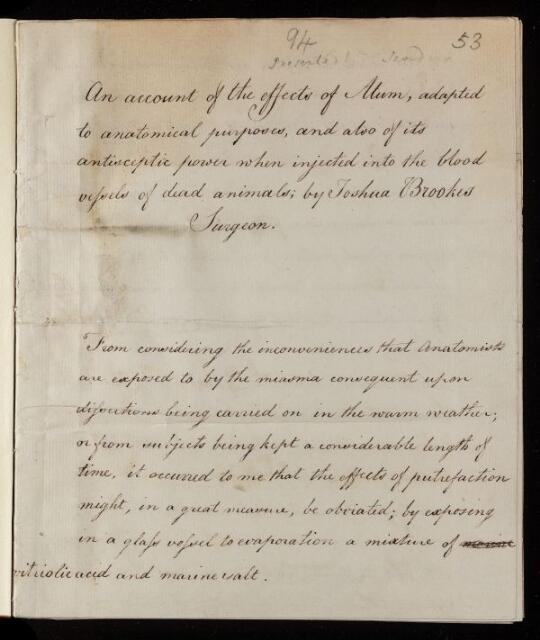 94
53
An account of the effects of Alum, adapted
to anatomical purposes, and also of its
antisceptic power when injected into the blood
vessels of dead animals; by Joshua Brookes
Surgeon.
From considering the inconveniences that Anatomists
are exposed to by the miasma consequent upon
dissections being carried on in the warm weather;
or from subjects being kept a considerable length of
time, it occurred to me that the effects of putrefaction
might, in a great measure, be obviated; by exposing
in a glass vessel to evaporation a mixture of
vitriolic acid and marine salt.